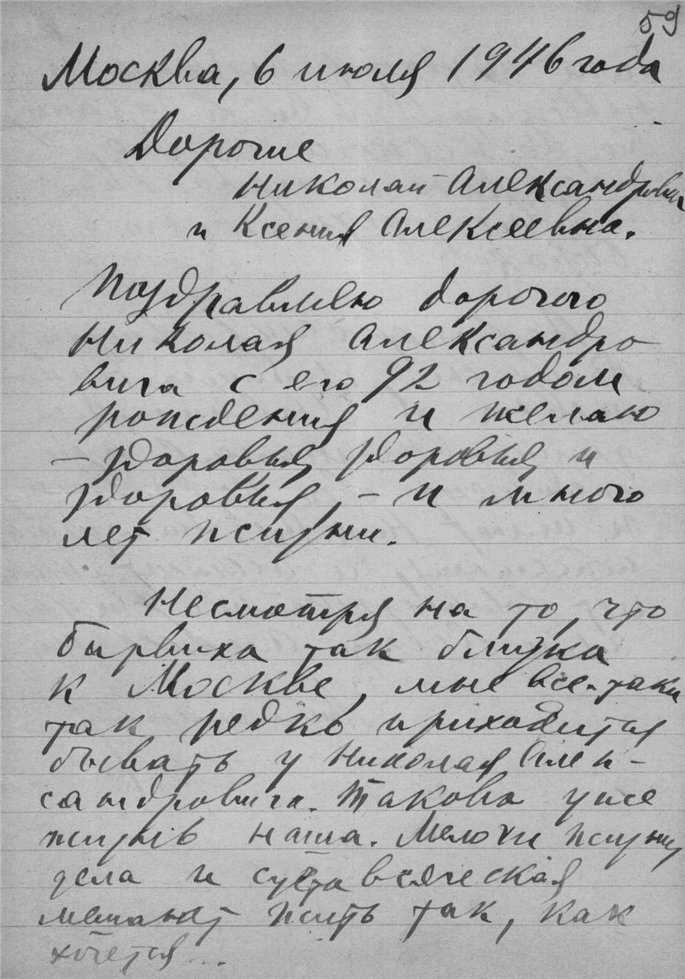 59
Москва, 6 июля 1946 года
Дорогие
Николай Александрович
и Ксения Алексеевна.
Поздравляю дорогого
Николая Александро-
вича с его 92 годом
рождения и желаю
— здоровья, здоровья и
здоровья, — и много
лет жизни.
Несмотря на то, что
Барвиха так близка
к Москве, мне все-таки
так редко приходится
бывать у Николая Алек-
сандровича. Такова уже
жизнь наша. Мелочи жизни,
дела и суета всяческая
мешают жить так, как
хочется...